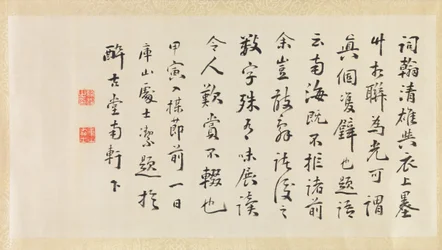 詞翰清雄與衣上墨
竹相聯為光可謂
真個雙璧也題語
云南海既不拒諸前
余豈敢辭諸後之
數字殊有味展讀
令人歎賞不輟也
甲寅入橾節前一日
庫山處士潔題於
醉古堂南軒下